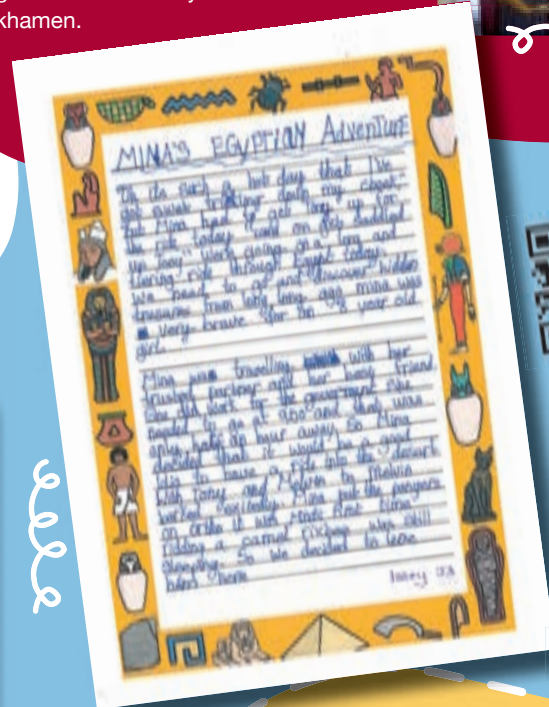 khamen.
MINA'S EGYPTIAN Adventure
Oh its such a hot day that I've
got sweat down my
But Mina had to get Tony up for
the ride today
up Tony" were going on a long and
tiering ride through Egypt today.
We need to go and discover hidden
treasures from long long ago mina was
a very brave for an 8 year old
girl.
Mina was travelling with her
trusted partner and her best friend
She did work for the government she
needed to go at 9:30 and that was
only half an hour away. So Mina
decided that it would be a good
idia to have a ride into the
with Tony and Melvin to Melvin
barked excitedly Mina put the
on it was first time
ridding a camel was still
sleeping. So we decided to leve
here